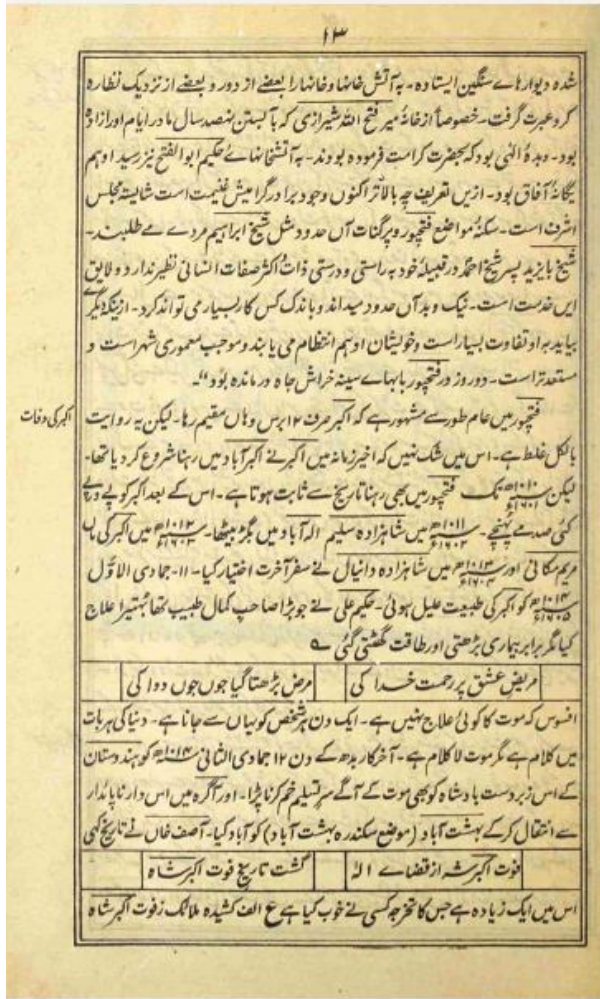 ۱۳
شدہ دیوارہاے سنگین ایستادہ۔ بہ آتش خانہا و خانہا را بعضے از دور و بعضے از نزدیک نظارہ
کرد عبرت گرفت۔ خصوصاً از خانۂ میر فتح اللہ شیرازی کہ بآبستن نہصد سال مادر ایام او را زادہ
بود۔ وبدۂ الہٰی بود کہ بحضرت کرامت فرمودہ بودند۔ بہ آتشخانہاے حکیم ابوالفتح نیز رسید او ہم
یگانۂ آفاق بود۔ ازیں تعریف چہ بالاتر اکنوں وجود برادر گرامیش غنیمت است شایستہ مجلس
اشرف است۔ سکنۂ مواضع فتحپور و پرگنات آں حدود مثل شیخ ابراہیم مردے مے طلبند۔
شیخ بایزید پسر شیخ احمد در قبیلۂ خود بہ راستی و درستی ذات و اکثر صفات انسانی نظیر ندارد و لایق
ایں خدمت است۔ نیک و بد آں حدود میداند و باندک کس کار بسیار می تواند کرد۔ ازینکہ دیگرے
بیاید بہ او تفاوت بسیار است و خویشان او ہم انتظام می یابند و موجب معموری شہر است و
مستعدتر است۔ دو روز در فتحپور بابہاے سینہ خراش جاہ درماندہ بود“۔
فتحپور میں عام طور سے مشہور ہے کہ اکبر صرف ۱۲ برس وہاں مقیم رہا۔ لیکن یہ روایت
اکبر کی وفات
بالکل غلط ہے۔ اس میں شک نہیں کہ اخیر زمانہ میں اکبر نے اکبر آباد میں رہنا شروع کر دیا تھا۔
لیکن ۱۰۱۰ھ ۱۶۰۱ء تک فتحپور میں بھی رہنا تاریخ سے ثابت ہوتا ہے۔ اس کے بعد اکبر کو پے در پے
کئی صدمے پہنچے۔ ۱۰۱۱ھ ۱۶۰۲ء میں شاہزادہ سلیم الہ آباد میں بگڑ بیٹھا۔ ۱۰۱۲ھ ۱۶۰۳ء میں اکبر کی ماں
مریم مکانی اور ۱۰۱۳ھ ۱۶۰۴ء میں شاہزادہ دانیال نے سفر آخرت اختیار کیا۔ ۱۱۔ جمادی الاوّل
۱۰۱۴ھ ۱۶۰۵ء کو اکبر کی طبیعت علیل ہوئی۔ حکیم علی نے جو بڑا صاحب کمال طبیب تھا بہتیرا علاج
کیا مگر برابر بیماری بڑھتی اور طاقت گھٹتی گئی ؎
مریض عشق پر رحمت خدا کی مرض بڑھتا گیا جوں جوں دوا کی
افسوس کہ موت کا کوئی علاج نہیں ہے۔ ایک دن ہر شخص کو یہاں سے جانا ہے۔ دنیا کی ہر بات
میں کلام ہے مگر موت لا کلام ہے۔ آخرکار بدھ کے دن ۱۲ جمادی الثانی ۱۰۱۴ھ کو ہندوستان
کے اس زبردست بادشاہ کو بھی موت کے آگے سر تسلیم خم کرنا پڑا۔ اور آگرہ میں اس دار ناپائدار
سے انتقال کر کے بہشت آباد (موضع سکندرہ بہشت آباد) کو آباد کیا۔ آصف خاں نے تاریخ کہی
فوت اکبر شہ از قضاے الہ گشت تاریخ فوت اکبر شاہ
اس میں ایک زیادہ ہے جس کا تخرجہ کسی نے خوب کیا ہے ع الف کشیدہ ملائک ز فوت اکبر شاہ